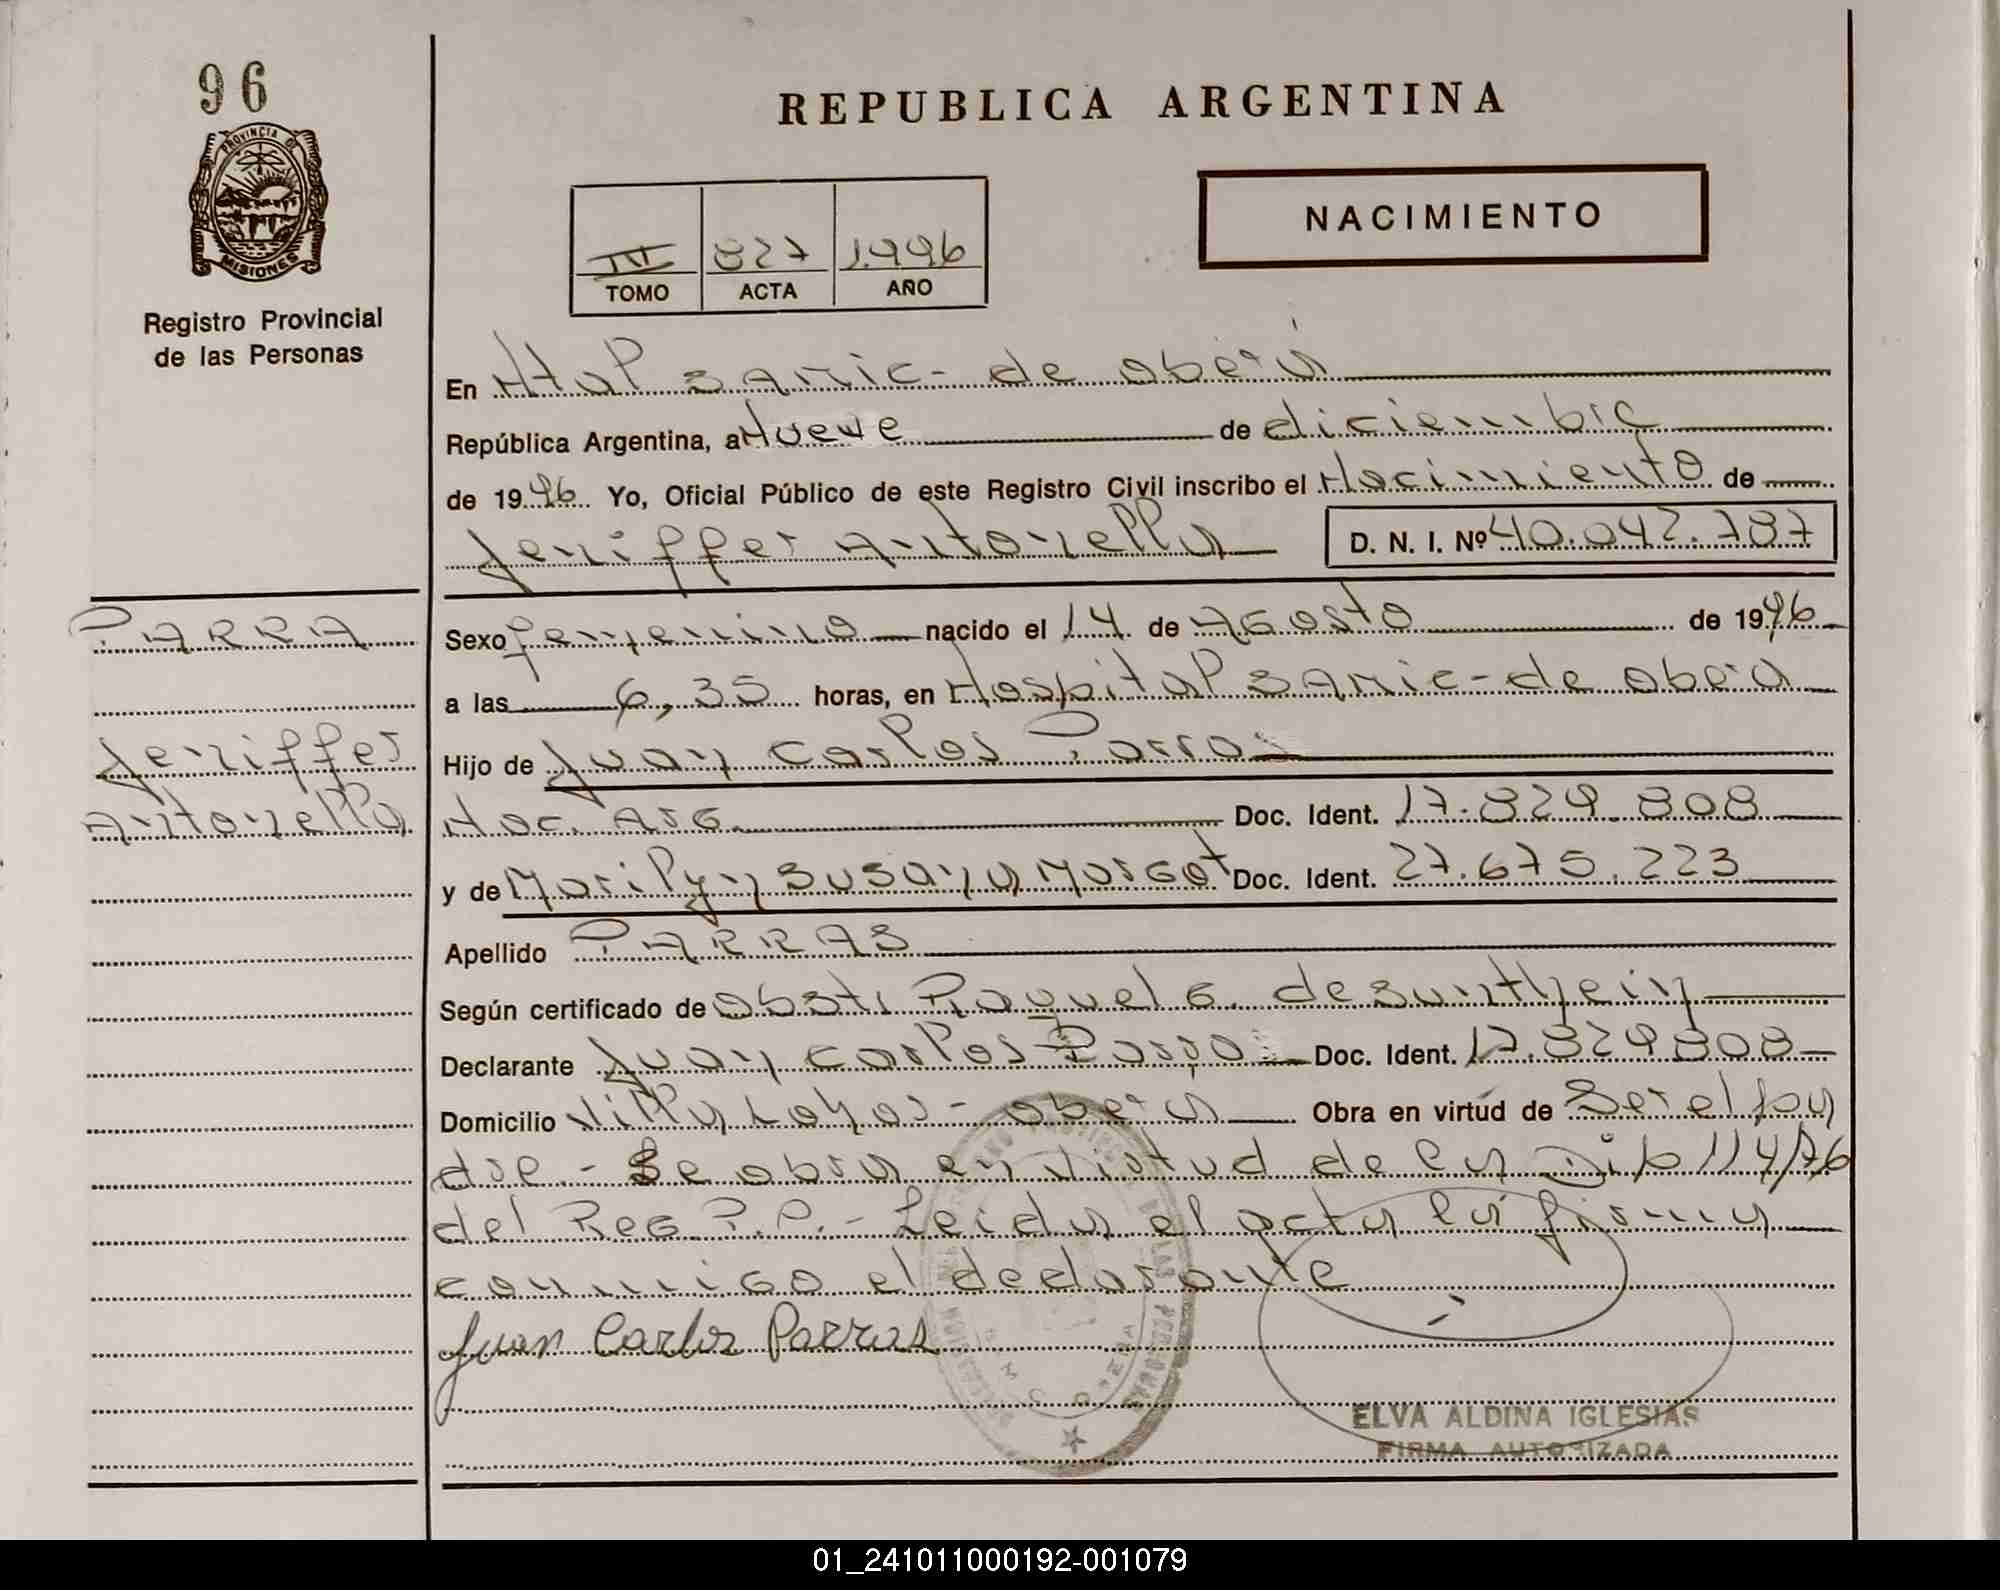 96
PROVINCIA DE
MISIONES
Registro Provincial
de las Personas
REPUBLICA ARGENTINA
III 827 1.996
TOMO ACTA AÑO
NACIMIENTO
En Htal Samic - de oberá
República Argentina, a Nueve de diciembre
de 19 96 Yo, Oficial Público de este Registro Civil inscribo el Nacimiento de
Jeniffer Antonella D. N. I. Nº 40.042.787
PARRA
Jeniffer
Antonella
Sexo femenino nacido el 14 de Agosto de 19 96
a las 6,35 horas, en Hospital Samic - de obera
Hijo de Juan Carlos Parras
Nac. Arg Doc. Ident. 17.829.808
y de Marilyn Susana Margot Doc. Ident. 27.675.223
Apellido PARRAS
Según certificado de obst. Raquel G. de
Declarante Juan Carlos Parras Doc. Ident. 17.829808
Domicilio Villa Lohos - obera Obra en virtúd de Ser el pa
dre - Se obra en virtud de la Dip 114/76
del Reg. P.P. - Leida el acta la firma
conmigo el declarante
Juan Carlos Parras
ELVA ALDINA IGLESIAS
FIRMA AUTORIZADA
01_241011000192-001079